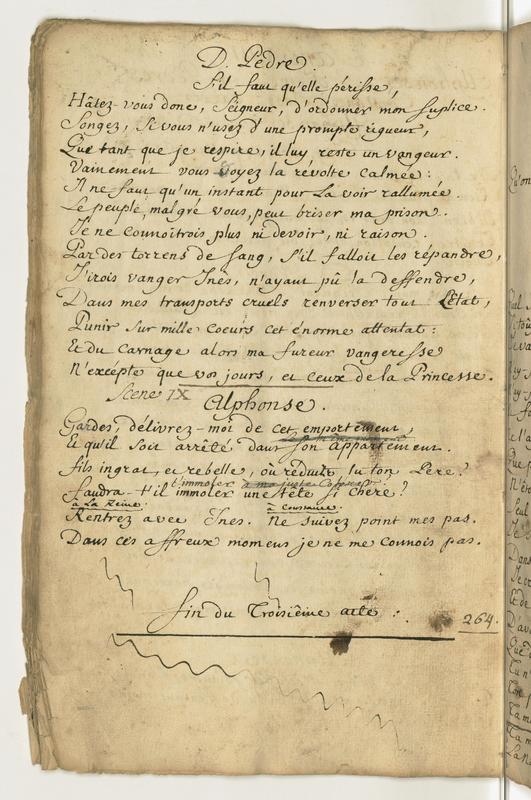 D. Pèdre.
S'il faut qu'elle périsse,
Hâtez-vous donc, Seigneur, d'ordonner mon suplice.
Songez, si vous n'usez d'une prompte rigueur,
Que tant que je respire, il luy reste un vangeur.
Vainement vous voyez la révolte calmée:
Il ne faut qu'un instant pour la voir rallumée.
Le peuple malgré vous, peut briser ma prison.
Je ne connoitrois plus ni devoir, ni raison.
Par des torrens de sang, s'il falloit les répandre,
J'irois vanger Inès, n'ayant pû la deffendre,
Dans mes transports cruels renverser tout l'Etat,
Punir sur mille coeurs cet énorme attentat:
Et du carnage alors ma fureur vangeresse
N'excépte que vos jours, et ceux de la Princesse.
Scene IX
Alphonse.
Gardes, délivrez-moi de cet emportement,
Et qu'il soit arrêté dans son appartement.
fils ingrat, et rebelle, où réduits tu ton Pere?
t'immoler a ma juste
faudra-t'il immoler une tête si chere?
à La Reine. à Constance.
Rentrez avec Ines. Ne suivez point mes pas.
Dans ces affreux momens je ne me connois pas.
fin du Troisième acte:
264.